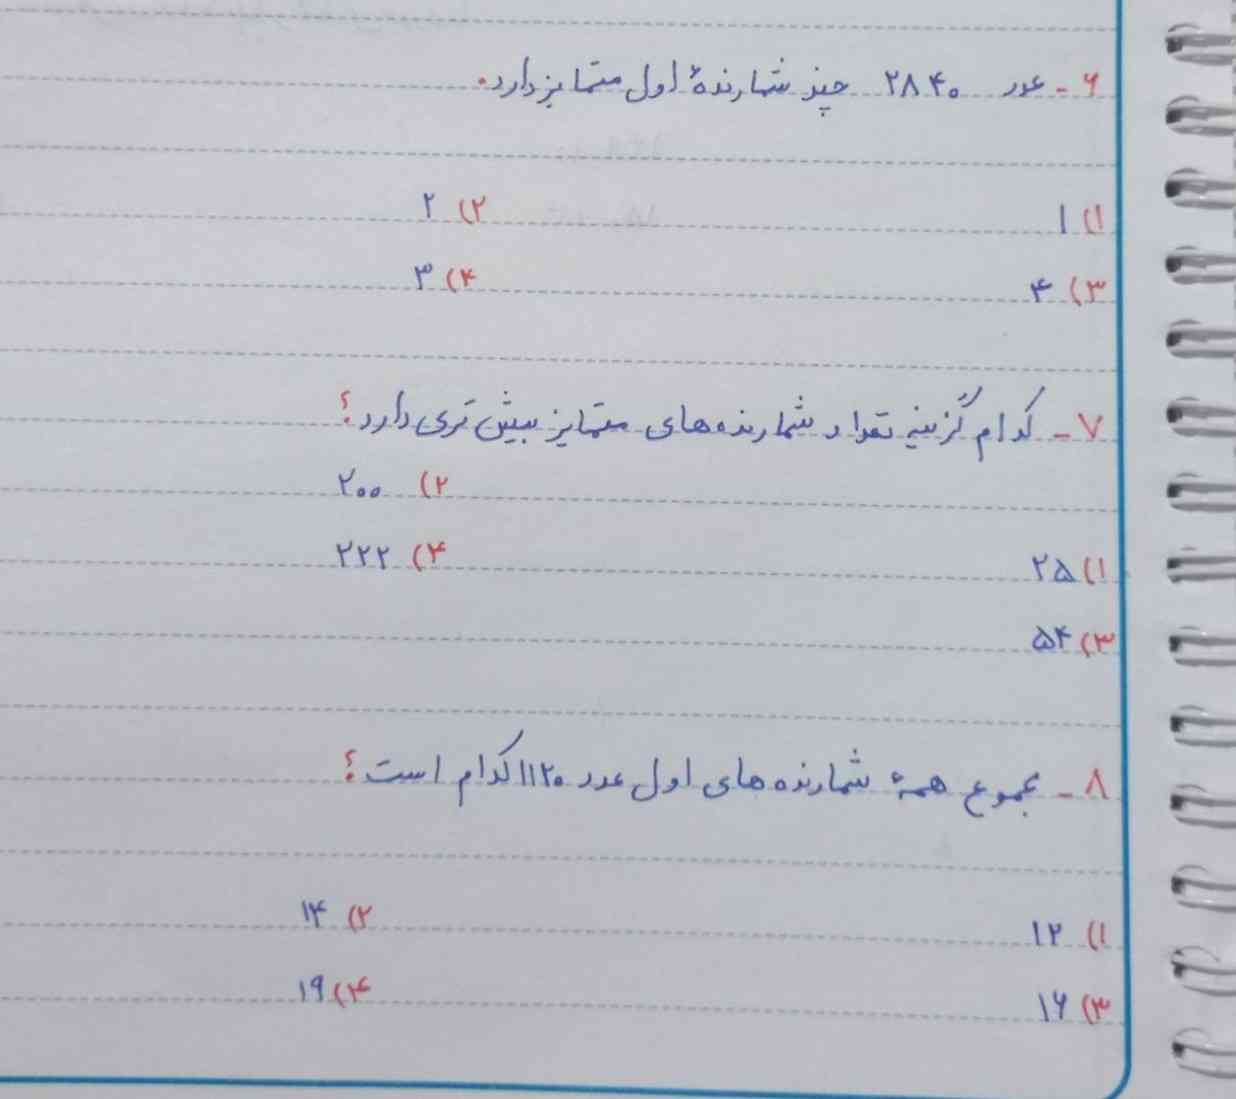 ۶- عدد ۲۸۴۰ چند شمارندهٔ اول متمایز دارد.
۱) ۱ ۲) ۲
۳) ۴ ۴) ۳
۷- کدام گزینه تعداد شمارنده‌های متمایز بیش‌تری دارد؟
۲) ۲۰۰
۱) ۲۵ ۴) ۲۲۲
۳) ۵۴
۸- مجموع همهٔ شمارنده‌های اول عدد ۱۱۲۰ کدام است؟
۱) ۱۲ ۲) ۱۴
۳) ۱۶ ۴) ۱۹